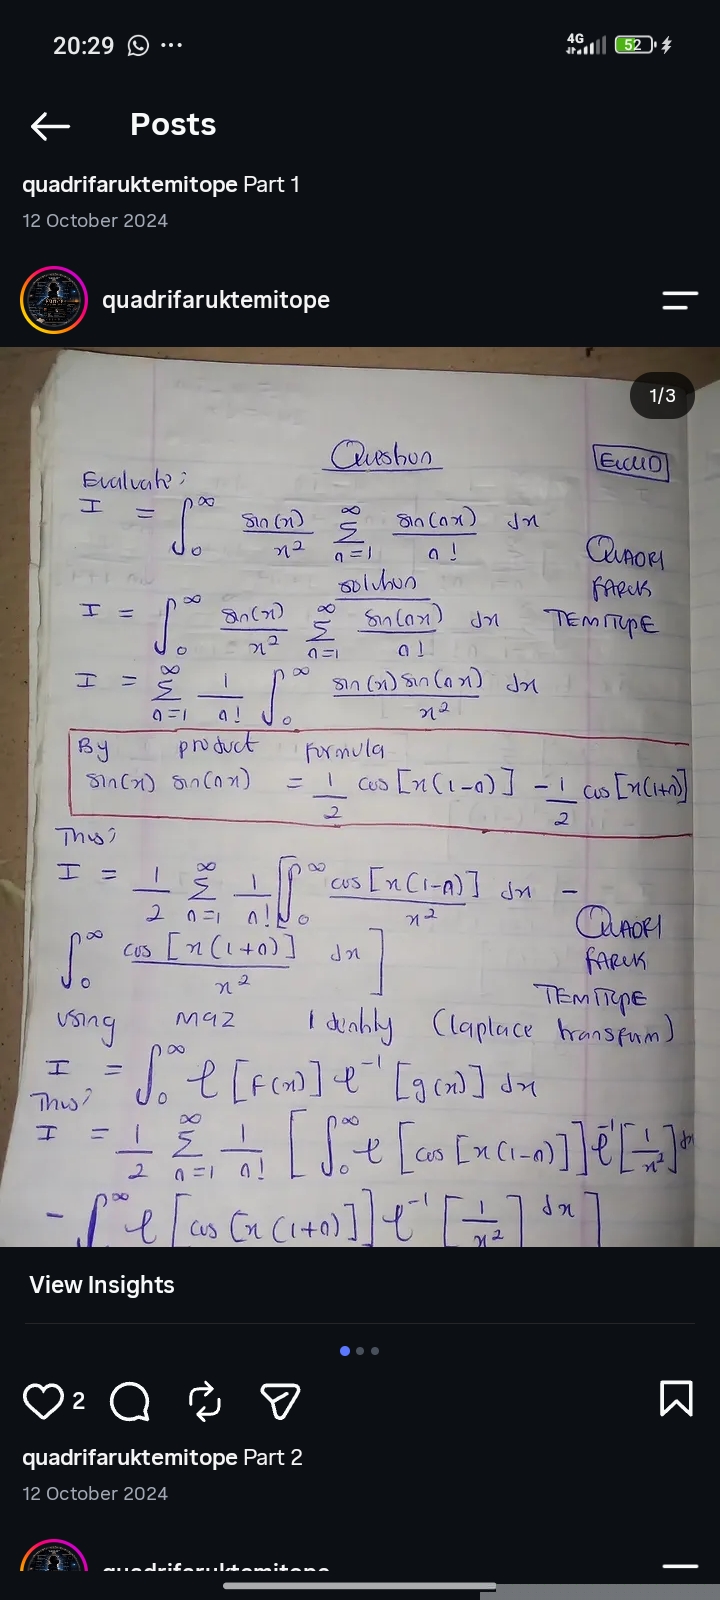 20:29 ... 4G 52
Posts
quadrifaruktemitope Part 1
12 October 2024
quadrifaruktemitope
1/3
Question
Evaluate:
I = ∫₀^∞ sin(x)/x² ∑_{n=1}^∞ sin(nx)/n! dx
QUADRI
FARUK
TEMITOPE
solution
I = ∫₀^∞ sin(x)/x² ∑_{n=1}^∞ sin(nx)/n! dx
I = ∑_{n=1}^∞ 1/n! ∫₀^∞ sin(x) sin(nx)/x² dx
By product formula
sin(x) sin(nx) = 1/2 cos[x(1-n)] - 1/2 cos[x(1+n)]
Thus;
I = 1/2 ∑_{n=1}^∞ 1/n! [∫₀^∞ cos[x(1-n)]/x² dx -
∫₀^∞ cos[x(1+n)]/x² dx]
QUADRI
FARUK
TEMITOPE
using maz Identity (laplace transform)
I = ∫₀^∞ ℓ[f(x)] ℓ⁻¹[g(x)] dx
Thus;
I = 1/2 ∑_{n=1}^∞ 1/n! [∫₀^∞ ℓ[cos[x(1-n)]] ℓ⁻¹[1/x²] dx
- ∫₀^∞ ℓ[cos[x(1+n)]] ℓ⁻¹[1/x²] dx]
View Insights
2
quadrifaruktemitope Part 2
12 October 2024
quadrifaruktemitope